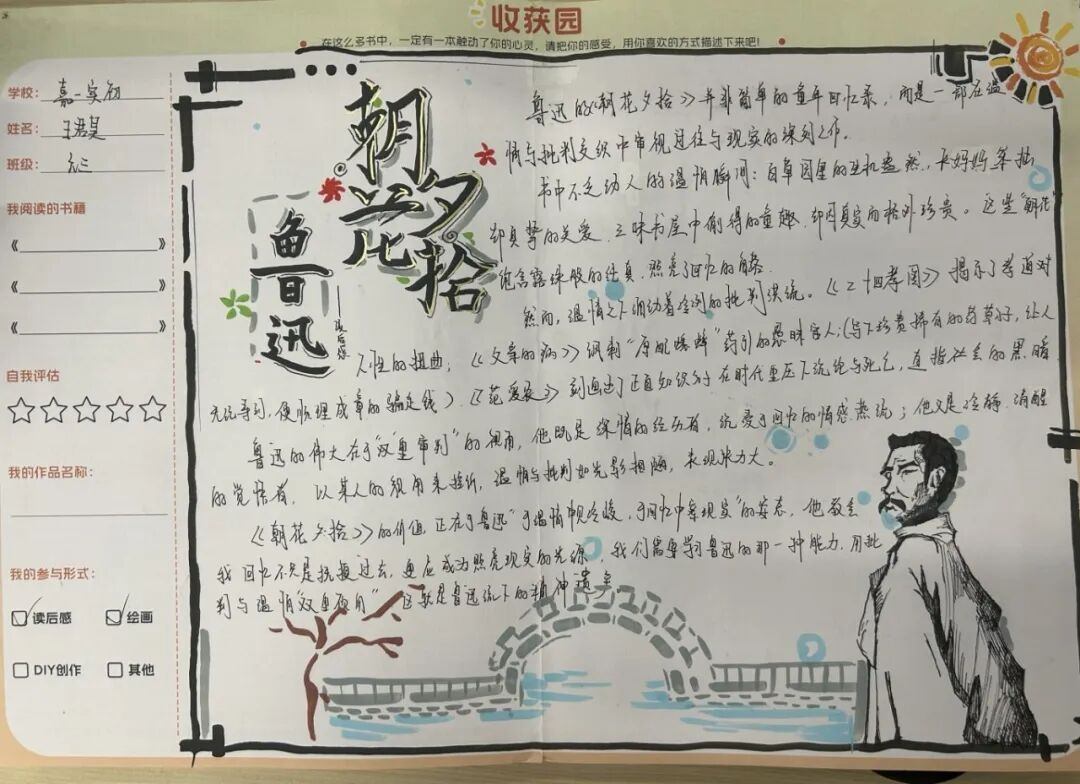 收获园
在这么多书中，一定有一本触动了你的心灵，请把你的感受，用你喜欢的方式描述下来吧！
学校：嘉一实初
姓名：王君昊
班级：
我阅读的书籍
《 》
《 》
《 》
自我评估
我的作品名称：
我的参与形式：
读后感 绘画
DIY创作 其他
朝花夕拾
鲁迅
——读后感
鲁迅的《朝花夕拾》并非简单的童年回忆录，而是一部在温
情与批判交织中审视过往与现实的深刻之作。
书中不乏动人的温情瞬间：百草园里的生机盎然，长妈妈笨拙
却真挚的关爱，三味书屋中偷得的童趣，却因真实而格外珍贵。这些“朝花”
饱含露珠般的纯真，照亮了回忆的角落。
然而，温情之下涌动着冷冽的批判洪流。《二十四孝图》揭示了孝道对
人性的扭曲；《父亲的病》讽刺“原配蟋蟀”药引的愚昧害人；（写下珍贵稀有的药草了，让人
无法寻到，便顺理成章的骗走钱）．《范爱农》刻画出了正直知识分子在时代重压下沉沦与死亡，直指社会的黑暗
鲁迅的伟大在于“双重审判”的视角，他既是深情的经历者，沉浸于回忆的情感热流；他又是冷静、清醒
的觉悟者，以某人的视角来控诉，温情与批判如光影相随，表现张力大。
《朝花夕拾》的价值，正在于鲁迅“于温情中见冷峻，于回忆中察现实”的姿态，他教会
我回忆不只是抚摸过去，更应成为照亮现实的光源，我们需要学习鲁迅的那一种能力，用批
判与温情“双重夜目”这就是鲁迅流下的精神遗产